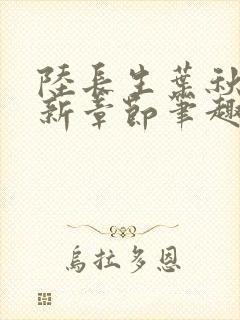 陸長生葉秋
新章節筆趣
烏拉多恩